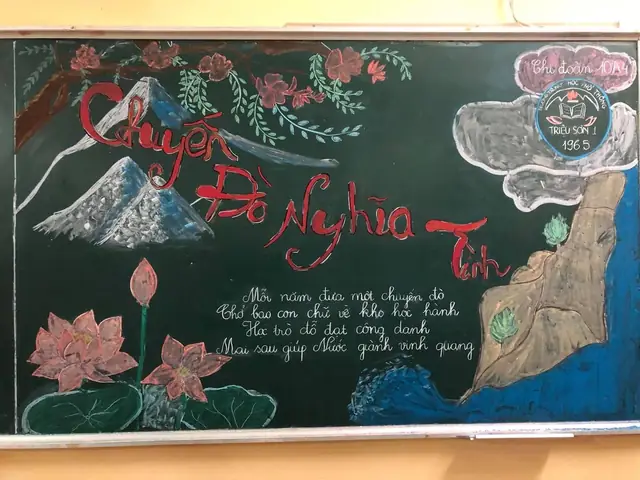 Chi đoàn 10A4
TRƯỜNG TRUNG HỌC PHỔ THÔNG
TRIỆU SƠN 1
1965
Chuyến
Đò Nghĩa Tình
Mỗi năm đưa một chuyến đò
Chở bao con chữ về kho học hành
Học trò đỗ đạt công danh
Mai sau giúp Nước giành vinh quang